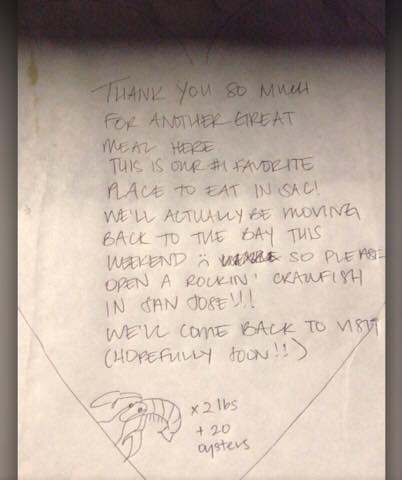 THANK YOU SO MUCH
FOR ANOTHER GREAT
MEAL HERE.
THIS IS OUR #1 FAVORITE
PLACE TO EAT IN SAC!
WE'LL ACTUALLY BE MOVING
BACK TO THE BAY THIS
WEEKEND :( SO PLEASE
OPEN A ROCKIN' CRAWFISH
IN SAN JOSE!!!
WE'LL COME BACK TO VISIT
(HOPEFULLY SOON!!)
x 2 lbs
+ 20
oysters